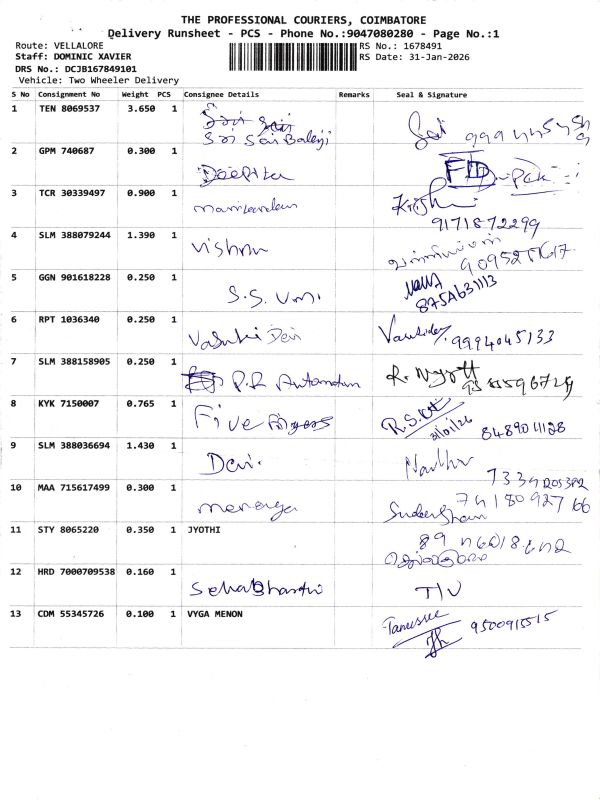 THE PROFESSIONAL COURIERS, COIMBATORE
Delivery Runsheet - PCS - Phone No.:9047080280 - Page No.:1
Route: VELLALORE RS No.: 1678491
Staff: DOMINIC XAVIER RS Date: 31-Jan-2026
DRS No.: DCJB167849101
Vehicle: Two Wheeler Delivery
S No Consignment No Weight PCS Consignee Details Remarks Seal & Signature
1 TEN 8069537 3.650 1 Sri Sai Balaji
2 GPM 740687 0.300 1 Deepika
3 TCR 30339497 0.900 1 Manikandan Krish
9171872299
4 SLM 388079244 1.390 1 Vishnu
5 GGN 901618228 0.250 1 S.S. Umi
6 RPT 1036340 0.250 1 Vasuki Devi 9994045133
7 SLM 388158905 0.250 1 P.R Automation
8 KYK 7150007 0.765 1 Five Fingers 31/01/26 8489041128
9 SLM 388036694 1.430 1 Devi.
10 MAA 715617499 0.300 1 Sudharshan 7418092766
11 STY 8065220 0.350 1 JYOTHI
12 HRD 7000709538 0.160 1
13 CDM 55345726 0.100 1 VYGA MENON 9500915515